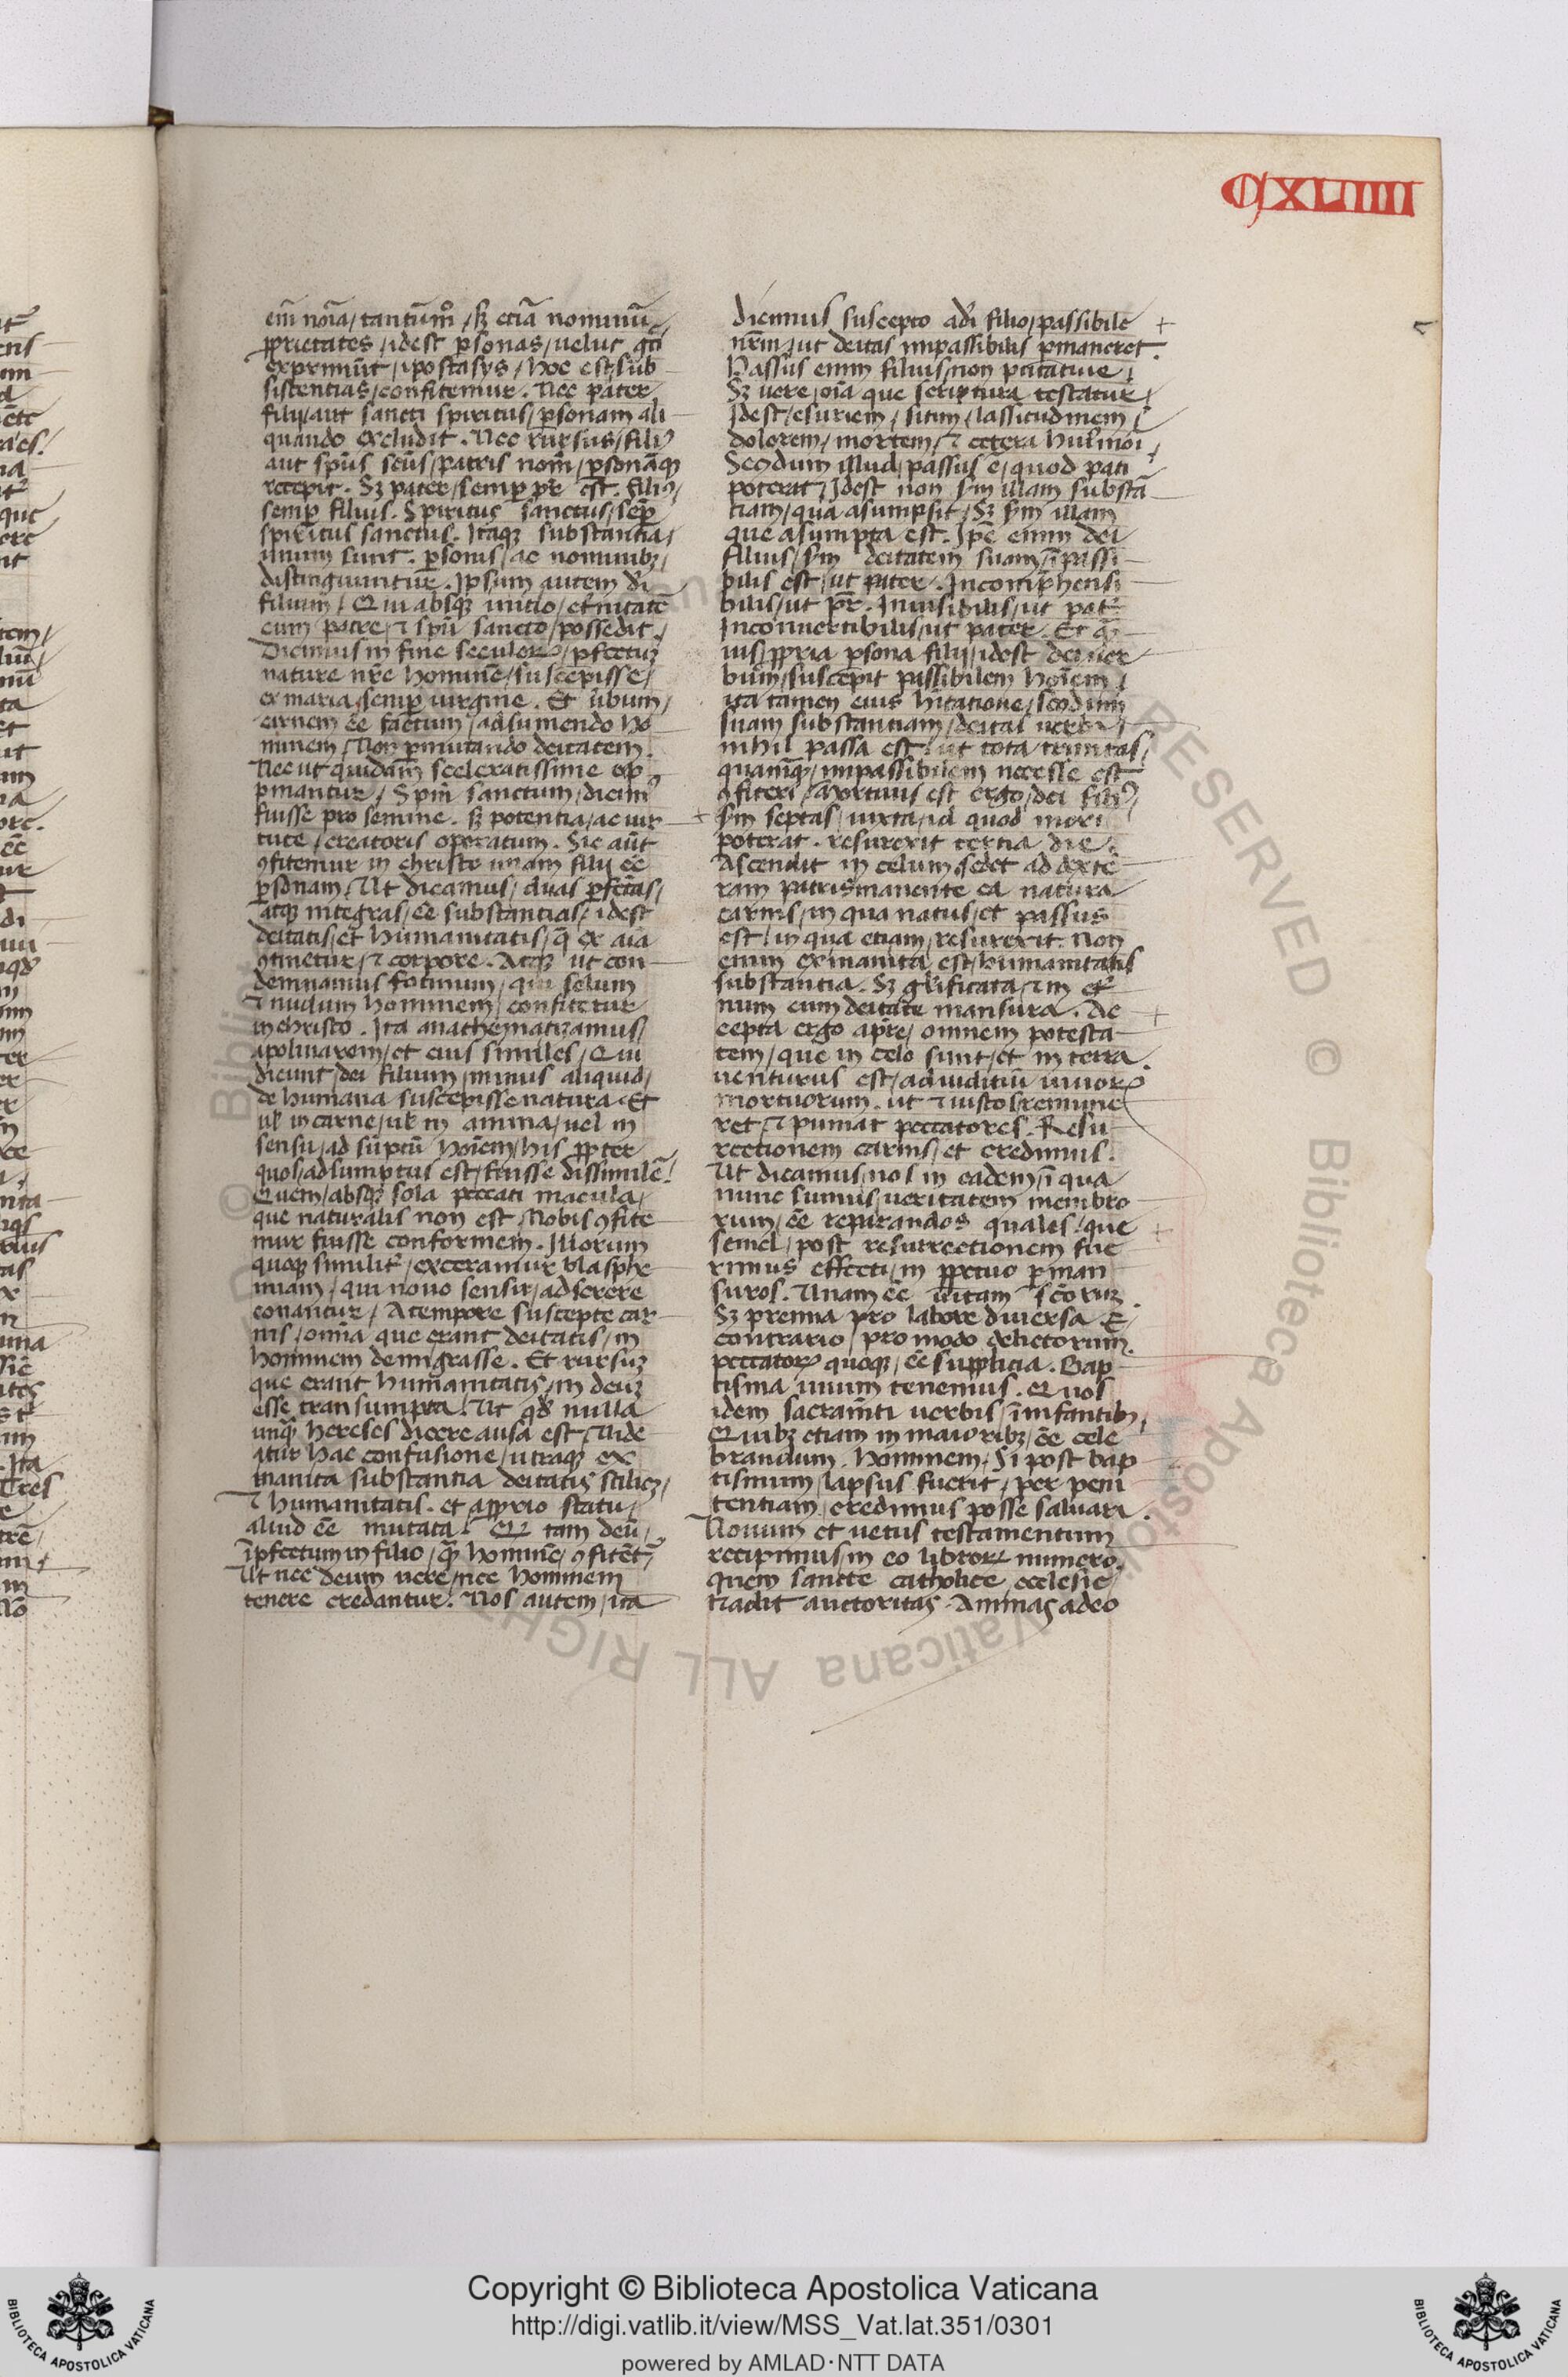 CXLIIII
em̄ noīa / tantūmͦ / sꝫ etiā nominū
ꝓprietates / idest ꝑsonas / uelut gͣci
exprimūt / ipostasys / hoc est / sub
sistentias / confitemur . Nec pater
filij / aut sancti spiritus / ꝑsonam ali
quando excludit . Nec rursus / filiꝰ
aut spūs scūs / patris nom̄ / ꝑsonāqꝫ
recepit . Sꝫ pater / semꝑ pr̄ est . filiꝰ /
semꝑ filius . Spiritus sanctus / seꝑ
spiritus sanctus . Itaqꝫ substantia /
unum sunt . ꝑsonis / ac nominibꝫ /
distinguuntur . Ipsum autem dī
filium / Qui absqꝫ initio / et̄nitatē
cum patre / ⁊ spū sancto / possedit .
Dicimus in fine seculoꝝ / ꝑfectuꝫ
nature nr̄e hominē / suscepisse /
ex maria / semꝑ uirgine . Et ūbum /
carnem ēe factum / adsumendo ho
minem / Non ꝑmutando deitatem .
Nec ut quidam sceleratissime op
ꝑmantur / Spm̄ sanctum / dicimꝰ
fuisse pro semine . sꝫ potentia / ac uir
tute / creatoris operatum . Sic aūt
ꝯfitemur in christo unam filij ēe
ꝑsonam / Ut dicamus / duas ꝑfectas /
atqꝫ integras / ēe substantias / idest
deitatis / et humanitatis / q̄ ex aīa
ꝯtinetur / ⁊ corpore . Atqꝫ ut con
demnamus fotinum / qui solum
⁊ nudum hominem / confitetur
in christo . Ita anathematizamus /
apolinarem / et eius similes / Qui
dicunt / dei filium / minus aliquid /
de humana suscepisse natura . Et
ul̄ in carne / ul̄ in anima / uel in
sensu / ad sūptū hoīem / his ꝓpter
quos / adsumptus est / fuisse dissimilē /
Quem / absqꝫ sola peccati macula /
que naturalis non est / Nobis ꝯfite
mur fuisse conformem . Illorum
quoqꝫ similit̄ / exceramur blasphe
miam / qui nouo sensu / adserere
conantur / A tempore suscepte car
nis / omīa que erant deitatis / in
hominem demigrasse . Et rursuꝫ
que erant humanitatis / in deuꝫ
esse transumpta / Ut qd̄ nulla
unqꝫ hereses dicere ausa est / Uide
atur hac confusione / utraqꝫ ex
inanita substantia deitatis scilicꝫ /
⁊ humanitatis . et a ꝓprio statu /
aliud ēe mutata / Qui tam deū /
īꝑfectum in filio / qꝫ hominē / ꝯfitēt̄
Ut nec deum uere / nec hominem
tenere credantur . Nos autem / ita
dicimus suscepto a dī filio / passibile
nr̄m / ut deitas impassibilis ꝑmaneret .
Passus enim filius / non putatiue /
Sꝫ uere / oīa que scriptura testatur /
Idest / esuriem / sitim / lassitudinem /
dolorem / mortem / ⁊ cetera huiᷤmoi /
Secdum illud / passus ē / quod pati
poterat / Idest non sm̄ illam substā
tiam / qua asumpsit / Sꝫ sm̄ illam
que asumpta est . Ipē enim dei
filius / sm̄ deitatem suam / īpassi
bilis est / ut pater . Incomp̄hensi
bilis / ut pr̄ . Inuisibilis / ut pat̄
Inconuertibilis / ut pater . Et q̄
uis / ꝓpria ꝑsona filij / idest dei uer
bum / suscepit passibilem hoīem /
ita tamen eius hītatione / secdum
suam substantiam / deitas uerbi /
nihil passa est / ut tota trinitas /
quamqꝫ / impassibilem necesse est
ꝯfiteri / Mortuus est ergo / dei filiꝰ /
sm̄ scptas / iuxta / id quod mori
poterat . resurexit tertia die .
Ascendit in celum / sedet ad dexte
ram patris / manente ea natura
carnis / in qua natus / et passus
est / in qua etiam / resurexit . Non
enim exinanita est / humanitatis
substantia . Sꝫ gl̄ificata / ⁊ in et̄
num cum deitate mansura . Ac
cepta ergo apr̄e / omnem potesta
tem / que in celo sunt / et in terra .
uenturus est / ad iuditiū uiuoꝝ
mortuorum . ut ⁊ iustos remune
ret / ⁊ puniat peccatores . Resu
rectionem carnis / et credimus .
Ut dicamus / nos in eadem / ī qua
nunc sumus / ueritatem membro
rum / ēe reparandos quales / que
semel / post resurrectionem fue
rimus effecti / in ꝑpetuo ꝑman
suros . Unam ēe uitam scōruꝫ .
Sꝫ premia pro labore diuersa / E
contrario / pro modo delictorum .
peccatoꝝ quoqꝫ / ēe supplicia . Bap
tisma unum tenemus . Quos
idem sacram̄ti uerbis / ī infantibꝫ /
Quibꝫ etiam in maioribꝫ / ēe cele
brandum . Hominem / Si post bap
tismum / lapsus fuerit / per peni
tentiam / credimus posse saluari .
Nouum et uetus testamentum
recipimus / in eo libroꝝ numero .
quem sancte catholice ecclesie /
tradit auctoritas . Animas a deo
Copyright © Biblioteca Apostolica Vaticana
http://digi.vatlib.it/view/MSS_Vat.lat.351/0301
powered by AMLAD·NTT DATA